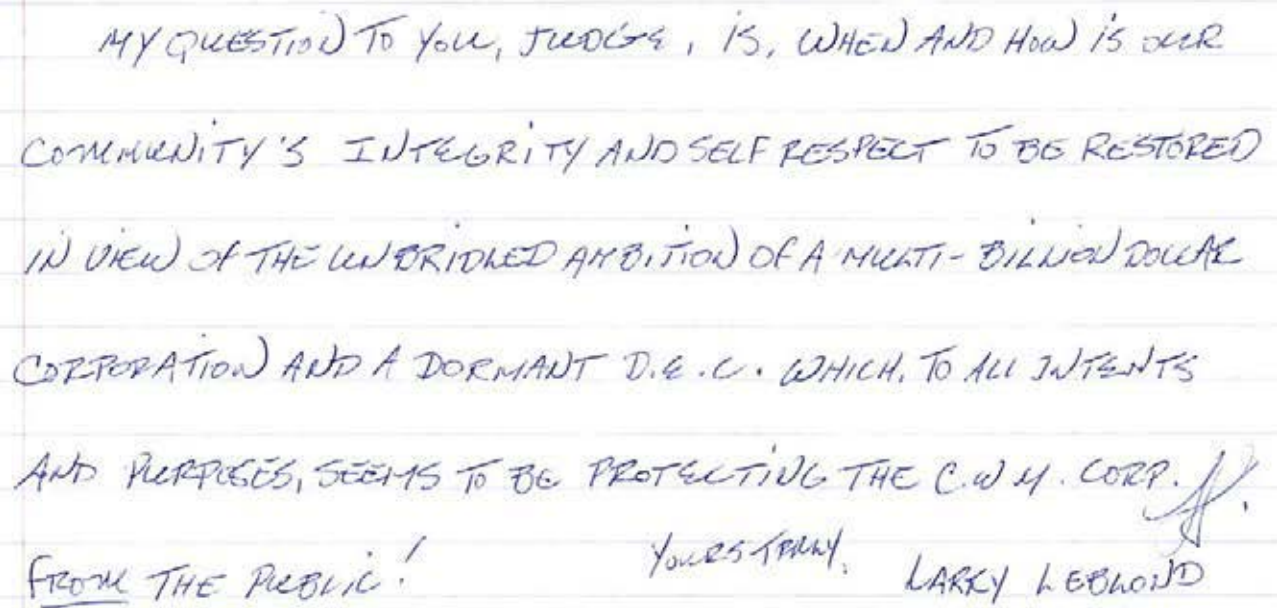 MY QUESTION TO YOU, JUDGE, IS, WHEN AND HOW IS OUR
COMMUNITY'S INTEGRITY AND SELF RESPECT TO BE RESTORED
IN VIEW OF THE UNBRIDLED AMBITION OF A MULTI-BILLION DOLLAR
CORPORATION AND A DORMANT D.E.C. WHICH, TO ALL INTENTS
AND PURPOSES, SEEMS TO BE PROTECTING THE C.W.M. CORP.
FROM THE PUBLIC! YOURS TRULY, LARRY LEBLOND